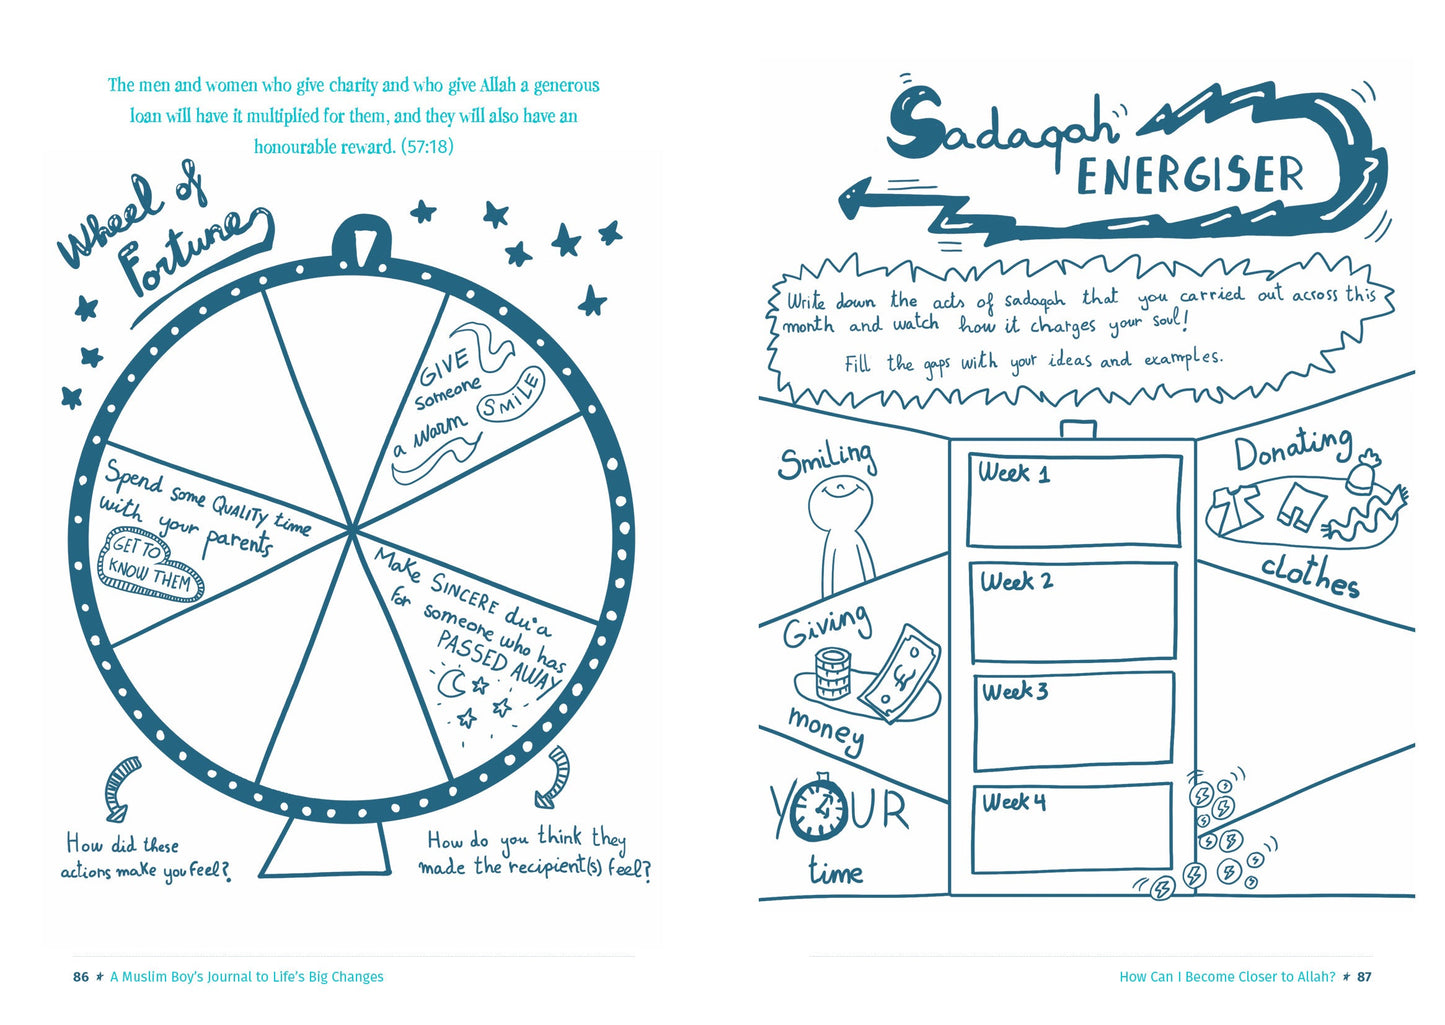 The men and women who give charity and who give Allah a generous
loan will have it multiplied for them, and they will also have an
honourable reward. (57:18)
Wheel of
Fortune
GIVE
someone
a warm SMILE
Spend some QUALITY time
with your parents
GET TO
KNOW THEM
Make SINCERE du'a
for someone who has
PASSED AWAY
How did these
actions make you feel?
How do you think they
made the recipient(s) feel?
86 A Muslim Boy's Journal to Life's Big Changes
Sadaqah
ENERGISER
Write down the acts of sadaqah that you carried out across this
month and watch how it charges your soul!
Fill the gaps with your ideas and examples.
Smiling
Giving
money
£
YOUR
time
Week 1
Week 2
Week 3
Week 4
Donating
clothes
How Can I Become Closer to Allah? 87